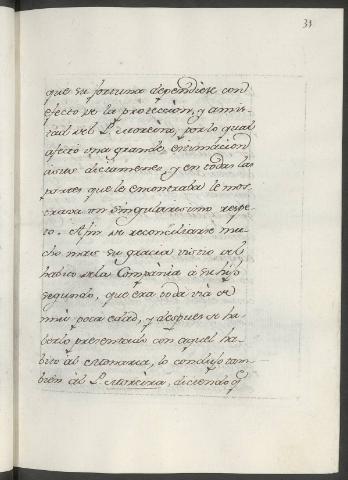 33
que su fortuna dependiese con
efecto de la proteccion, y amis-
tad del P. Moreira, por lo qual
afectó una grande estimacion
a sus dictamenes, y en todas las
partes que le encontraba le mos-
trava un singularissimo respe-
to. A fin de reconciliarse mu-
cho mas su gracia vistio del
habito de la Compañia a su hijo
segundo, que era toda via de
mui poca edad, y despues de ha-
berlo presentado con aquel ha-
bito al Monarca, lo condujo tam-
bien al P. Moreira, diciendo q